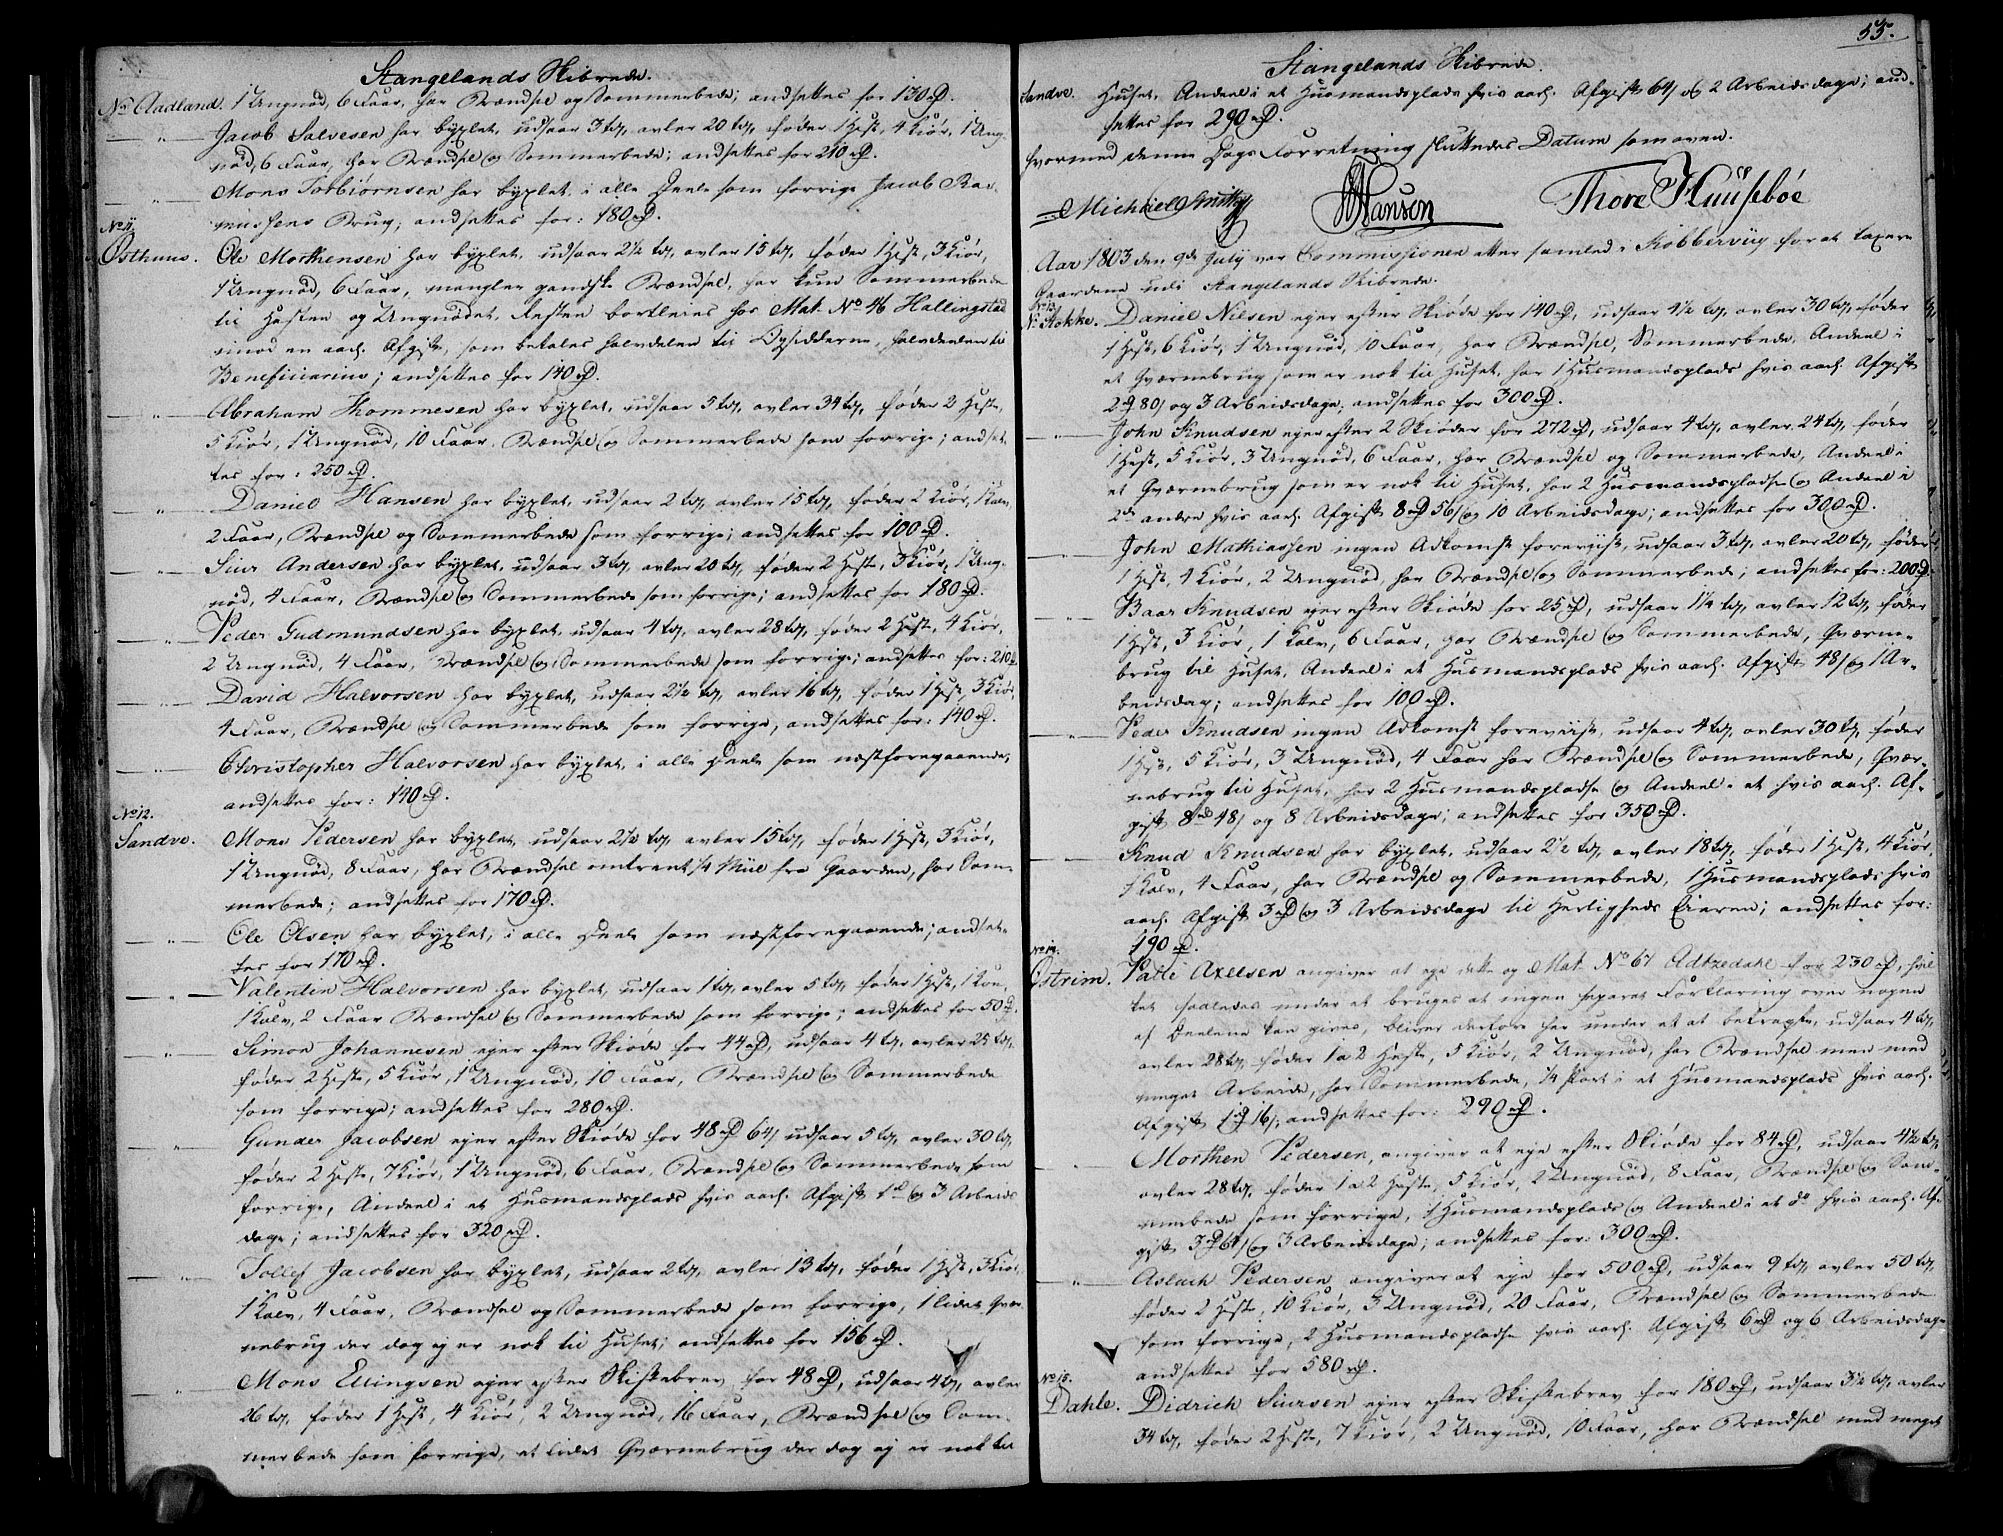 Stangelands Skibrede.
No Aadland. 1 Ungnød, 6 Faar, har Brændsel og Sommerbede; andsettes for 130 rd.
Jacob Salvesen har byxlet, udsaar 3 td, avler 20 td, føder 1 Hest, 4 Kiør, 1 Ung-
nød, 6 Faar, har Brændsel og Sommerbede; andsettes for 210 rd.
Mons Torbiørnsen har byxlet, i alle Deele som forrige Jacob Ras-
mussens Brug; andsettes for: 180 rd.
No 11.
Østhuus. Ole Morthensen har byxlet, udsaar 2 1/2 td, avler 15 td, føder 1 Hest, 3 Kiør,
1 Ungnød, 6 Faar, mangler gandske Brændsel, har kun Sommerbede
til Hesten og Ungnødet, Resten bortleies hos Mat. No 46 Hallingstad
imod en aarl. Afgift, som betales halvdelen til Opsidderne, halvdeelen til
Beneficiarius; andsettes for 140 rd.
Abraham Thommesen har byxlet, udsaar 5 td, avler 34 td, føder 2 Heste,
5 Kiør, 1 Ungnød, 10 Faar, Brændsel og Sommerbede som forrige; andset-
tes for: 250 rd.
Daniel Hansen har byxlet, udsaar 2 td, avler 15 td, føder 2 Kiør, 1 Kalv,
2 Faar, Brændsel og Sommerbede som forrige; andsettes for 100 rd.
Siur Andersen har byxlet, udsaar 3 td, avler 20 td, føder 2 Heste, 3 Kiør, 1 Ung-
nød, 4 Faar, Brændsel og Sommerbede som forrige; andsettes for 180 rd.
Peder Gudmundsen har byxlet, udsaar 4 td, avler 28 td, føder 2 Heste, 4 Kiør,
2 Ungnød, 4 Faar, Brændsel og Sommerbede som forrige; andsettes for: 210 rd
David Halvorsen har byxlet, udsaar 2 1/2 td, avler 16 td, føder 1 Hest, 3 Kiør,
4 Faar, Brændsel og Sommerbede som forrige, andsettes for: 140 rd.
Christopher Halvorsen har byxlet, i alle Deele som næstforegaaende,
andsettes for: 140 rd.
No 12.
Sandve. Mons Pedersen har byxlet, udsaar 2 1/2 td, avler 15 td, føder 1 Hest, 3 Kiør,
1 Ungnød, 8 Faar, har Brændsel omtrent 1/4 Miil fra Gaarden, har Som-
merbede; andsettes for 170 rd.
Ole Olsen har byxlet, i alle Deele som næstforegaaende; andset-
tes for 170 rd.
Valentin Halvorsen har byxlet, udsaar 1 td, avler 5 td, føder 1 Hest, 1 Koe,
1 Kalv, 2 Faar Brændsel og Sommerbede som forrige; andsettes for 50 rd.
Simon Johannesen ejer efter Skiøde for 44 rd, udsaar 4 td, avler 25 td,
føder 2 Heste, 5 Kiør, 1 Ungnød, 10 Faar, Brændsel og Sommerbede
som forrige; andsettes for 280 rd.
Gunder Jacobsen ejer efter Skiøde for 48 rd 64 s udsaar 5 td, avler 30 td,
føder 2 Heste, 7 Kiør, 1 Ungnød, 6 Faar, Brændsel og Sommerbede som
forrige, Andeel i et Husmandsplads hvis aarl. Afgift 1 rd og 3 Arbeids
dage; andsettes for 320 rd.
Tollef Jacobsen har byxlet, udsaar 2 td, avler 13 td, føder 1 Hest, 3 Kiør,
1 Kalv, 4 Faar, Brændsel og Sommerbede som forrige, 1 lidet Qvær-
nebrug der dog ej er nok til Huset; andsettes for 156 rd.
Mons Ellingsen ejer efter Skiftebrev for 48 rd, udsaar 4 td, avler
26 td, føder 1 Hest, 4 Kiør, 2 Ungnød, 16 Faar, Brændsel og Som-
merbede som forrige, et lidet Qværnebrug der dog ej er nok til
55.
Stangelands Skibrede.
Sandve. Huset, Andeel i et Husmandsplads hvis aarl. Afgift 64 s og 2 Arbeidsdage; and-
settes for 290 rd.
hvormed denne Dags Forretning sluttedes Datum som oven.
Michael Smith HHansen Thore Huusebøe
Aar 1803 den 9de July var Commissionen atter samled i Kobbervüg for at taxere
Gaardene udi Stangelands Skibrede.
No 13.
N. Stokke. Daniel Nilsen ejer efter Skiøde for 140 rd, udsaar 4 1/2 td, avler 30 td, føder
1 Hest, 6 Kiør, 1 Ungnød, 10 Faar, har Brændsel, Sommerbede, Andeel i
et Qværnebrug som er nok til Huset, har 1 Husmandsplads hvis aarl. Afgift
2 rd 80 s og 3 Arbeidsdage; andsettes for 300 rd.
John Knudsen ejer efter 2 Skiøder for 272 rd, udsaar 4 td, avler 24 td, føder
1 Hest, 5 Kiør, 3 Ungnød, 6 Faar, har Brændsel og Sommerbede, Andeel i
et Qværnebrug som er nok til Huset, har 2 Husmandspladse og Andeel i
2de andre hvis aarl. Afgift 8 rd 56 s og 10 Arbeidsdage; andsettes for 300 rd.
John Mathiassen ingen Adkomst foreviist, udsaar 3 td, avler 20 td, føder
1 Hest, 4 Kiør, 2 Ungnød, har Brændsel og Sommerbede; andsettes for: 200 rd.
Baar Knudsen ejer efter Skiøde for 25 rd, udsaar 1 1/4 td, avler 12 td, føder
1 Hest, 3 Kiør, 1 Kalv, 6 Faar, har Brændsel og Sommerbede, Qværne-
brug til Huset, Andeel i et Husmandsplads hvis aarl. Afgift 48 s og 1 Ar-
beidsdag; andsettes for 100 rd.
Peder Knudsen ingen Adkomst foreviist, udsaar 4 td, avler 30 td, føder
1 Hest, 5 Kiør, 3 Ungnød, 4 Faar har Brændsel og Sommerbede, Qvær-
nebrug til Huset, har 2 Husmandspladse og Andeel i et hvis aarl. Af-
gift 8 rd 48 s og 8 Arbeidsdage; andsettes for 350 rd.
Knud Knudsen har byxlet, udsaar 2 1/2 td, avler 18 td, føder 1 Hest, 4 Kiør,
1 Kalv, 4 Faar, har Brændsel og Sommerbede, 1 Husmandsplads hvis
aarl. Afgift 3 rd og 3 Arbeidsdage til Herligheds Eieren; andsettes for:
190 rd.
No 14.
Østrim. Palle Axelsen angiver at eje dette og Mat. No 67 Adtzedahl for 230 rd, hvil-
tet saaledes under et bruges at ingen separat Forklaring over nogen
af Deelene kan gives, bliver derfor her under et at betragte, udsaar 4 td,
avler 28 td, føder 1 a 2 Heste, 5 Kiør, 2 Ungnød, har Brændsel men med
meget Arbeide, har Sommerbede, 1/4 Part i et Husmandsplads hvis aarl.
Afgift 1 rd 16 s; andsettes for: 290 rd.
Morthen Pedersen, angiver at eje efter Skiøde for 84 rd, udsaar 4 1/2 td,
avler 28 td, føder 1 a 2 Heste, 5 Kiør, 2 Ungnød, 8 Faar, Brændsel og Som-
merbede som forrige, 1 Husmandsplads og Andeel i et do hvis aarl. Af-
gift 3 rd 64 s og 3 Arbeidsdage; andsettes for: 300 rd.
Aslach Pedersen angiver at eje for 500 rd, udsaar 9 td, avler 50 td,
føder 2 Heste, 10 Kiør, 3 Ungnød, 20 Faar, Brændsel og Sommerbede
som forrige, 2 Husmandspladse hvis aarl. Afgift 6 rd og 6 Arbeidsdage
andsettes for 580 rd.
No 15.
Dahle. Didrich Siursen ejer efter Skiftebrev for 180 rd, udsaar 3 1/2 td, avler
34 td, føder 2 Heste, 7 Kiør, 2 Ungnød, 10 Faar, har Brændsel med meget